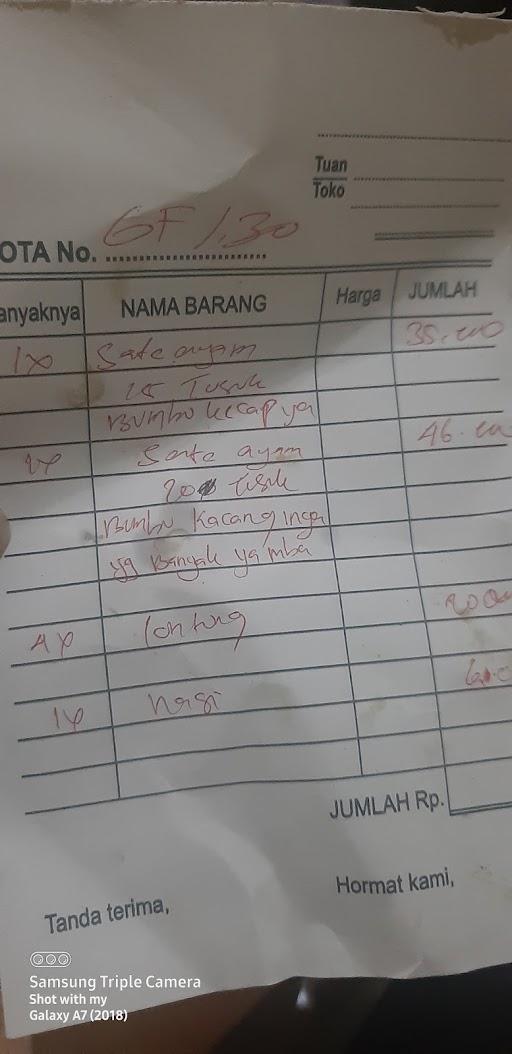 Tuan
Toko
OTA No. GF 1.30
anyaknya NAMA BARANG Harga JUMLAH
1x Sate ayam 35.000
15 Tusuk
Bumbu kecap ya
Sate ayam 46.
20 Tusuk
Bumbu Kacang inga
yg Banyak ya mba
4x lontong
1x nasi
JUMLAH Rp.
Tanda terima, Hormat kami,
Samsung Triple Camera
Shot with my
Galaxy A7 (2018)